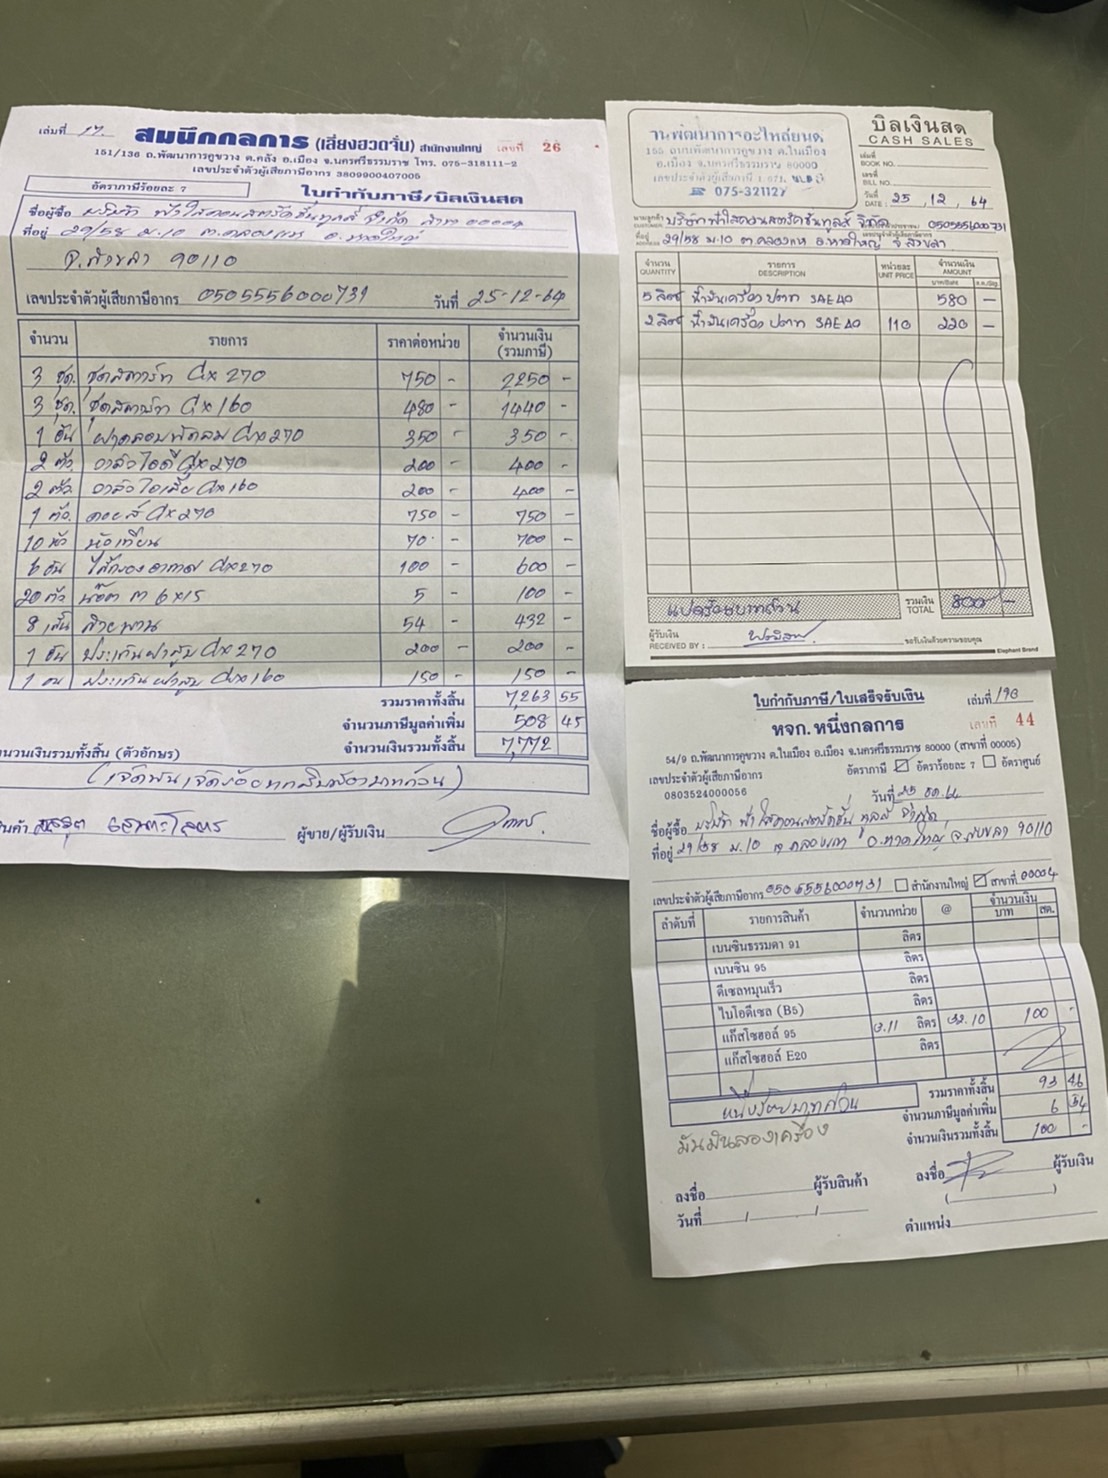 เล่มที่ 17.
สมนึกกลการ (เลี่ยงฮวดจั่น) สำนักงานใหญ่ เลขที่ 26
151/136 ถ.พัฒนาการคูขวาง ต.คลัง อ.เมือง จ.นครศรีธรรมราช โทร. 075-318111-2
เลขประจำตัวผู้เสียภาษีอากร 3809900407005
อัตราภาษีร้อยละ 7
ใบกำกับภาษี/บิลเงินสด
ชื่อผู้ซื้อ บริษัท ฟ้าใสคอนสตรัคชั่นทูลส์ จำกัด สาขา 00004
ที่อยู่ 29/58 ม.10 ต.คลองแห อ.หาดใหญ่
จ.สงขลา 90110
เลขประจำตัวผู้เสียภาษีอากร 0505556000731 วันที่ 25-12-64
จำนวน รายการ ราคาต่อหน่วย จำนวนเงิน (รวมภาษี)
3 ชุด. ชุดสตาร์ท Gx 270 750 - 2250 -
3 ชุด. ชุดสตาร์ท Gx 160 480 - 1440 -
1 อัน ฝาครอบพัดลม Gx 270 350 - 350 -
2 ตัว วาล์วไอดี Gx 270 200 - 400 -
2 ตัว วาล์วไอเสีย Gx 160 200 - 400 -
1 ตัว. คอยล์ Gx 270 750 - 750 -
10 หัว หัวเทียน 70 - 700 -
6 อัน ไส้กรองอากาศ Gx 270 100 - 600 -
20 ตัว น๊อต m 6x15 5 - 100 -
8 เส้น สายพาน 54 - 432 -
1 อัน ประเก็นฝาสูบ Gx 270 200 - 200 -
1 อัน ประเก็นฝาสูบ Gx 160 150 - 150 -
รวมราคาทั้งสิ้น 7,263 55
จำนวนภาษีมูลค่าเพิ่ม 508 45
จำนวนเงินรวมทั้งสิ้น 7,772
จำนวนเงินรวมทั้งสิ้น (ตัวอักษร)
(เจ็ดพันเจ็ดร้อยเจ็ดสิบสองบาทถ้วน)
ผู้ขาย/ผู้รับเงิน
บิลเงินสด
CASH SALES
ร้านพัฒนาการอะไหล่ยนต์
155 ถนนพัฒนาการคูขวาง ต.ในเมือง
อ.เมือง จ.นครศรีธรรมราช 80000
เลขประจำตัวผู้เสียภาษี
☎ 075-321127
เล่มที่ BOOK NO.
เลขที่ BILL NO.
วันที่ DATE 25 / 12 / 64
นามลูกค้า CUSTOMER บริษัทฟ้าใสคอนสตรัคชั่นทูลส์ จำกัด 0505556000731
ที่อยู่ ADDRESS 29/58 ม.10 ต.คลองแห อ.หาดใหญ่ จ.สงขลา
จำนวน QUANTITY รายการ DESCRIPTION หน่วยละ UNIT PRICE จำนวนเงิน AMOUNT
5 ลิตร น้ำมันเครื่อง ปตท SAE 40 580 -
2 ลิตร น้ำมันเครื่อง ปตท SAE 40 110 220 -
แปดร้อยบาทถ้วน รวมเงิน TOTAL 800 -
ผู้รับเงิน RECEIVED BY : ขอรับเงินด้วยความขอบคุณ
Elephant Brand
ใบกำกับภาษี/ใบเสร็จรับเงิน เล่มที่ 193
หจก. หนึ่งกลการ เลขที่ 44
54/9 ถ.พัฒนาการคูขวาง ต.ในเมือง อ.เมือง จ.นครศรีธรรมราช 80000 (สาขาที่ 00005)
เลขประจำตัวผู้เสียภาษีอากร อัตราภาษี อัตราร้อยละ 7 อัตราศูนย์
0803524000056
วันที่ 25 ธค. 64
ชื่อผู้ซื้อ บริษัท ฟ้าใสคอนสตรัคชั่น ทูลส์ จำกัด
ที่อยู่ 29/58 ม.10 ต.คลองแห อ.หาดใหญ่ จ.สงขลา 90110
เลขประจำตัวผู้เสียภาษีอากร 0505556000731 สำนักงานใหญ่ สาขาที่ 00004
ลำดับที่ รายการสินค้า จำนวนหน่วย @ จำนวนเงิน บาท สต.
เบนซินธรรมดา 91 ลิตร
เบนซิน 95 ลิตร
ดีเซลหมุนเร็ว ลิตร
ไบโอดีเซล (B5) ลิตร
แก๊สโซฮอล์ 95 3.11 ลิตร 32.10 100 -
แก๊สโซฮอล์ E20 ลิตร
รวมราคาทั้งสิ้น 93 46
หนึ่งร้อยบาทถ้วน จำนวนภาษีมูลค่าเพิ่ม 6 54
จำนวนเงินรวมทั้งสิ้น 100 -
ลงชื่อ ผู้รับสินค้า ลงชื่อ ผู้รับเงิน
วันที่ / / ตำแหน่ง